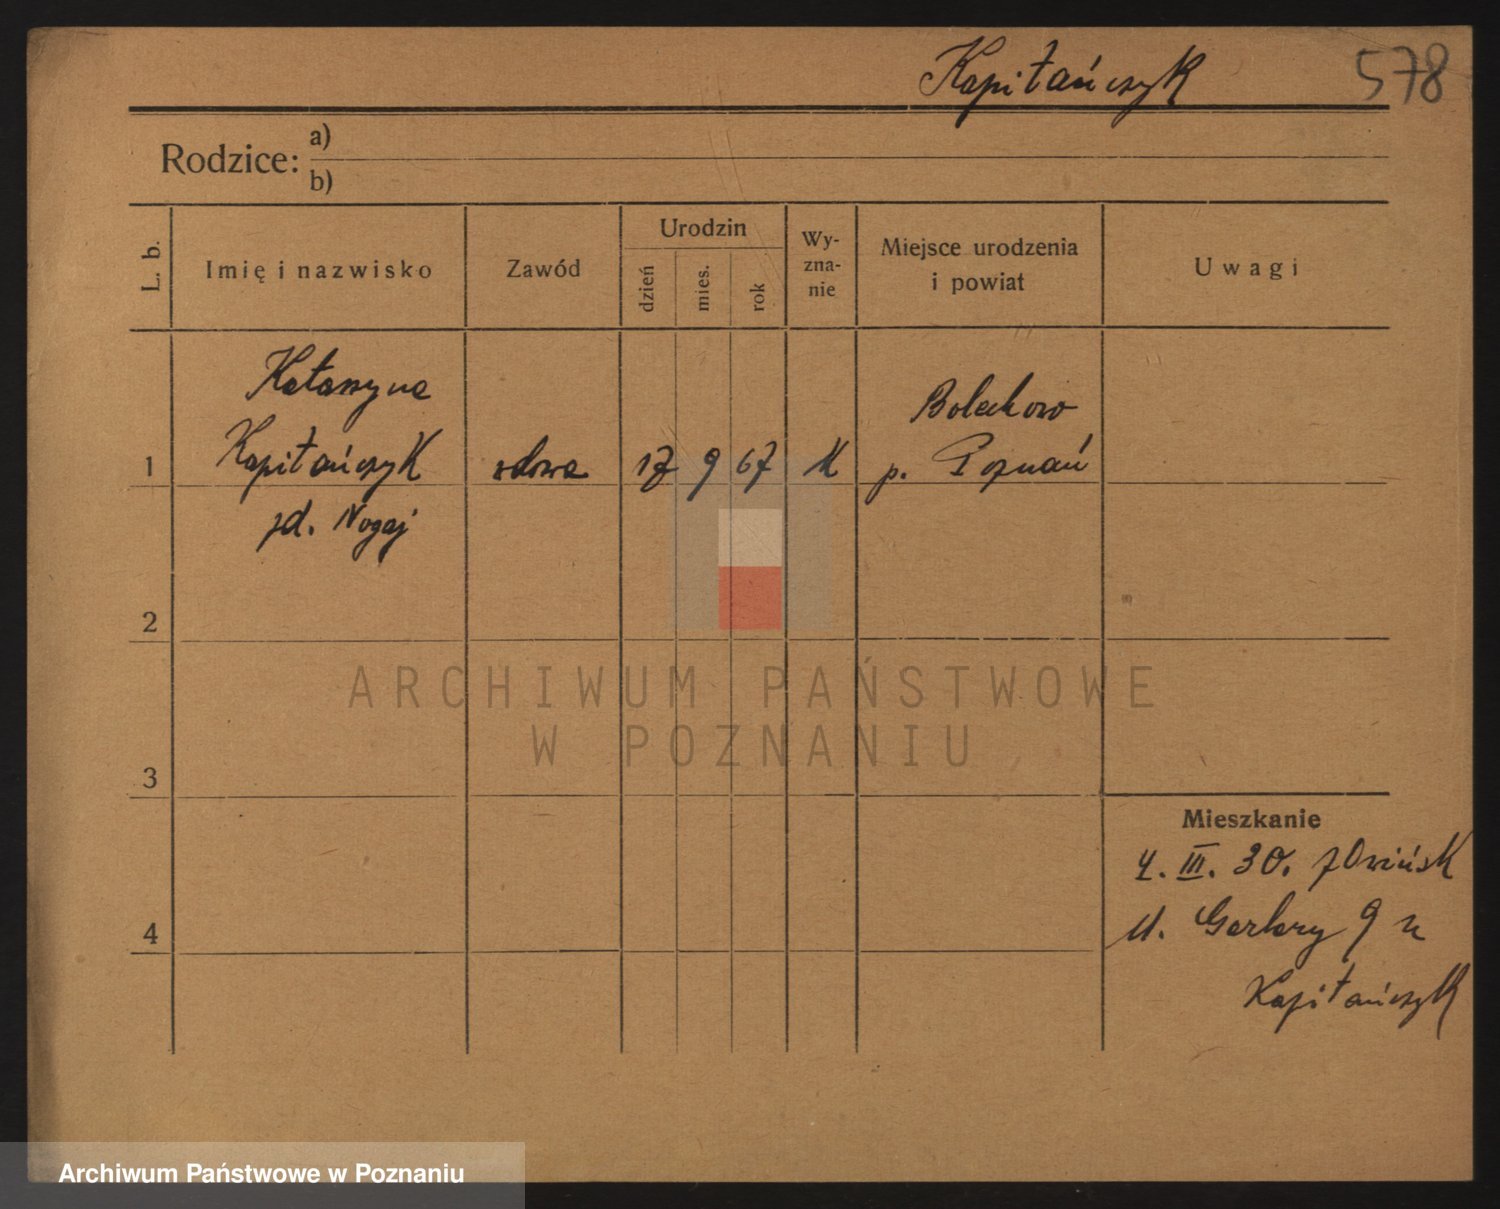 Kapitańczyk 578
Rodzice: a)
b)
L. b.
Imię i nazwisko
Zawód
Urodzin
dzień
mies.
rok
Wy-
zna-
nie
Miejsce urodzenia
i powiat
Uwagi
Katarzyna
Kapitańczyk
zd. Nogaj
1
wdowa
17 9 67
K
Bolechowo
p. Poznań
2
3
4
Mieszkanie
4. III. 30. z Owińsk
ul. Garbary 9 u
Kapitańczyk
ARCHIWUM PAŃSTWOWE
W POZNANIU
Archiwum Państwowe w Poznaniu